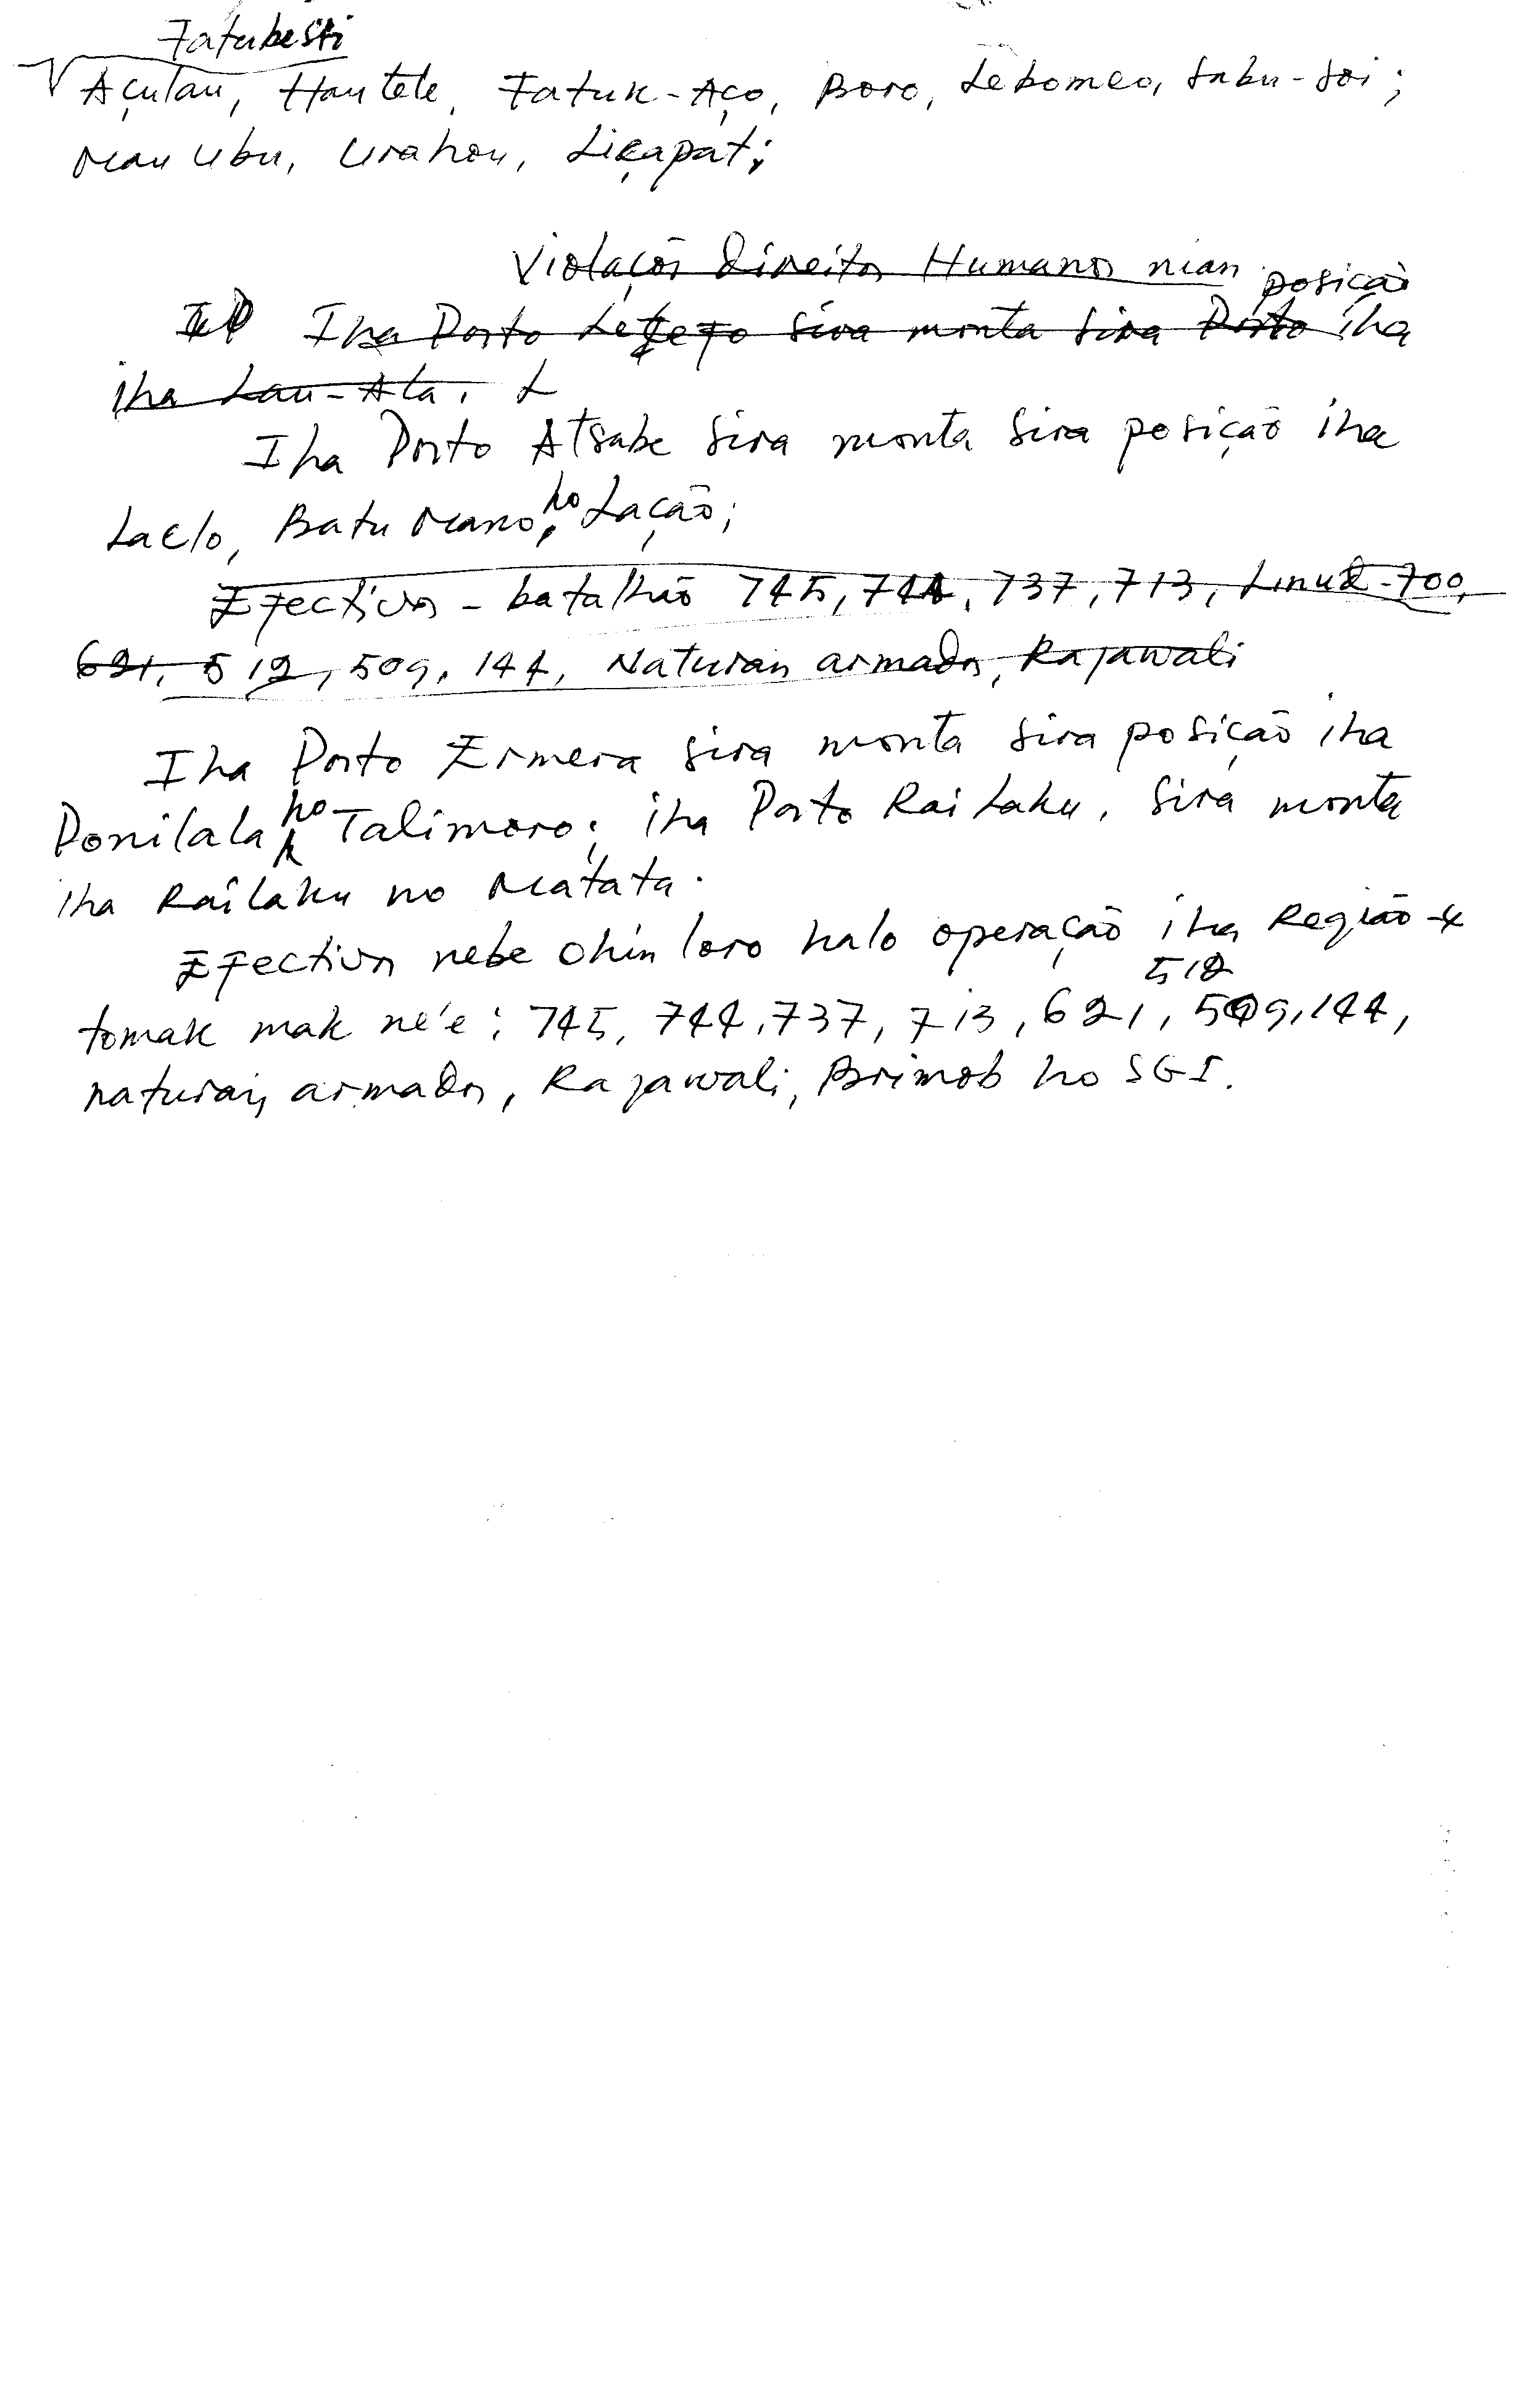 Fatubesti
Açulau, Hautete, Fatuk-Aço, Boro, Lebomeo, Sabu-Soi;
Mau Ubu, Urahou, Liçapat;
Violaçõs Direitos Humanos nian
posição
Iha Posto Letefo sira monta sira Posto iha
iha Lau-Ala. L
Iha Posto Atsabe sira monta sira posição iha
Laclo, Batu Mano, ho Lação;
Efectivos - batalhão 745, 744, 737, 713, Linud-700,
621, 512, 509, 144, Naturais armados, Rajawali
Iha Posto Ermera sira monta sira posição iha
Ponilala ho Talimoro; iha Posto Railaku, sira monta
iha Railaku no Matata.
Efectivos nebe ohin loro halo operação iha Região-4
512
tomak mak ne'e: 745, 744, 737, 713, 621, 509, 144,
naturais armados, Rajawali, Brimob ho SGI.